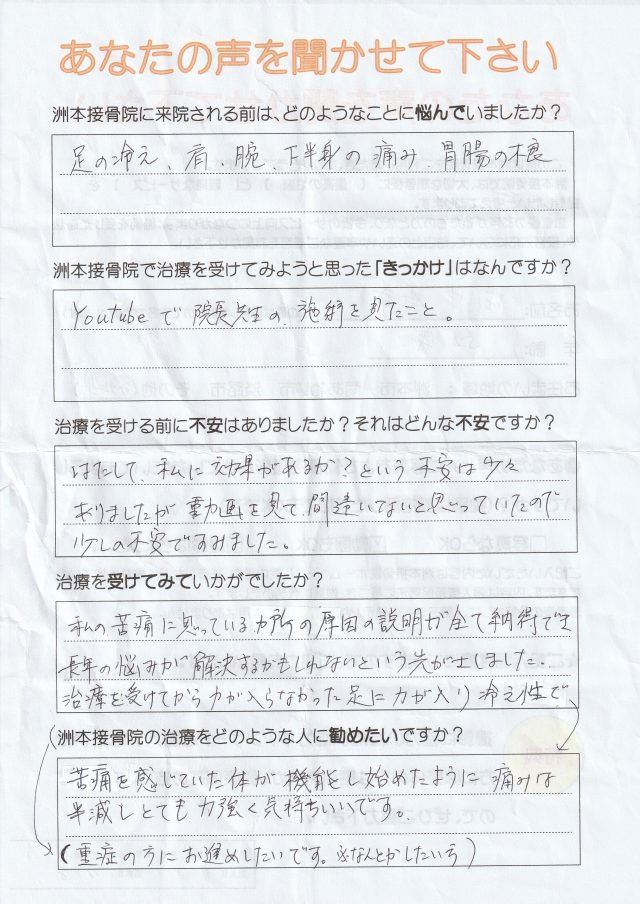 あなたの声を聞かせて下さい
洲本接骨院に来院される前は、どのようなことに悩んでいましたか？
足の冷え、肩、腕、下半身の痛み、胃腸の不良
洲本接骨院で治療を受けてみようと思った「きっかけ」はなんですか？
Youtubeで院長先生の施術を見たこと。
治療を受ける前に不安はありましたか？それはどんな不安ですか？
はたして、私に効果があるか？という不安は少々
ありましたが動画を見て間違いないと思っていたので
少しの不安ですみました。
治療を受けてみていかがでしたか？
私の苦痛に思っているカ所の原因の説明が全て納得でき
長年の悩みが解決するかもしれないという気がしました。
治療を受けてから力が入らなかった足に力が入り冷え性で
洲本接骨院の治療をどのような人に勧めたいですか？
苦痛を感じていた体が機能をし始めたように痛みは
半減しとても力強く気持ちいいです。
(重症の方にお進めしたいです。なんとかしたい方)